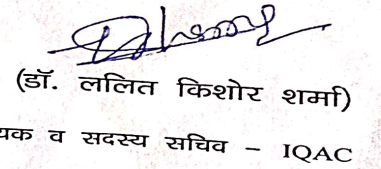 (डॉ. ललित किशोर शर्मा)
व सदस्य सचिव – IQAC